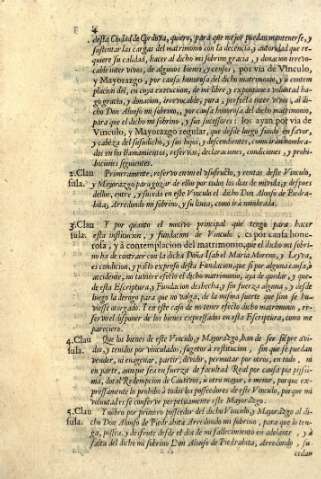 desta Ciudad de Cordova, quiero, para que mejor puedan mantenerse, y
sustentar las cargas del matrimonio con la decencia, y autoridad que re-
quiere su calidad, hacer al dicho mi sobrino gracia, y donacion irrevo-
cable inter vivos, de algunos bienes, y censos, por via de Vinculo,
y Mayorazgo, por causa honorosa del dicho matrimonio, y à contem
placion del, en cuya execucion, de mi libre, y expontanea voluntad ha-
go gracia, y donacion, irrevocable, pura, perfecta inter vivos, al di-
cho Don Alonso mi sobrino, por causa honorosa del dicho matrimonio,
para que el dicho mi sobrino, y sus sucessores los ayan por via de
Vinculo, y Mayorazgo regular, que desde luego fundo en favor,
y cabeza del susodicho, y sus hijos, y descendientes, como irán nombra-
dos en los llamamientos, reservas, declaraciones, condiciones, y prohi-
biciones siguientes.
2. Clau Primeramente, reservo en mi el usufructo, y rentas deste Vinculo,
sula. y Mayorazgo para gozar de ello por todos los dias de mi vida; y despues
dellos, entre, y suceda en este Vinculo el dicho Don Alonso de Piedra-
hita, Arredondo mi sobrino, y su linea, como irà nombrada.
3. Clau Y por quanto el motivo principal que tengo para hacer
sula. esta institucion, y fundacion de Vinculo, es por causa hone-
rosa, y à contemplacion del matrimonio, que el dicho mi sobri-
no ha de contraer con la dicha Doña Isabel Maria Moreno, y Leyva,
es condicion, y pacto expresso desta Fundacion, que si por alguna causa, ò
accidente, no tuviere efecto el dicho matrimonio, aya de quedar, y que-
de esta Escriptura, y Fundacion deshecha, y sin fuerza alguna, y desde
luego la derogo para que no valga, de la misma suerte que sino fu-
viesse otorgado. Y en este caso de no tener efecto dicho matrimonio, re-
servo el disponer de los bienes expressados en esta Escriptura, como me
pareciere.
4. Clau Que los bienes de este Vinculo, y Mayorazgo, han de ser siempre avi-
sula. dos, y tenidos por vinculados, sugetos à restitucion, sin que se puedan
vender, ni enagenar, partir, dividir, permutar por otros, en todo, ni
en parte, aunque sea en fuerza de facultad Real por causa pia pissi-
ma, dotal Redempcion de Cautivos, ù otra mayor, ò menor, por que ex-
pressamente lo prohibo à todos los posseedores de este Vinculo, por que mi
voluntad es se conserve perpetuamente este Mayorazgo.
5. Clau Y nombro por primero posseedor del dicho Vinculo, y Mayorazgo al di-
sula. cho Don Alonso de Piedrahita Arredondo mi sobrino, para que lo ten-
ga, possea, y desfrute desde el dia de mi fallecimiento en adelante, y à
falta del dicho mi sobrino Don Alonso de Piedrahita, Arredondo, su-
cedan